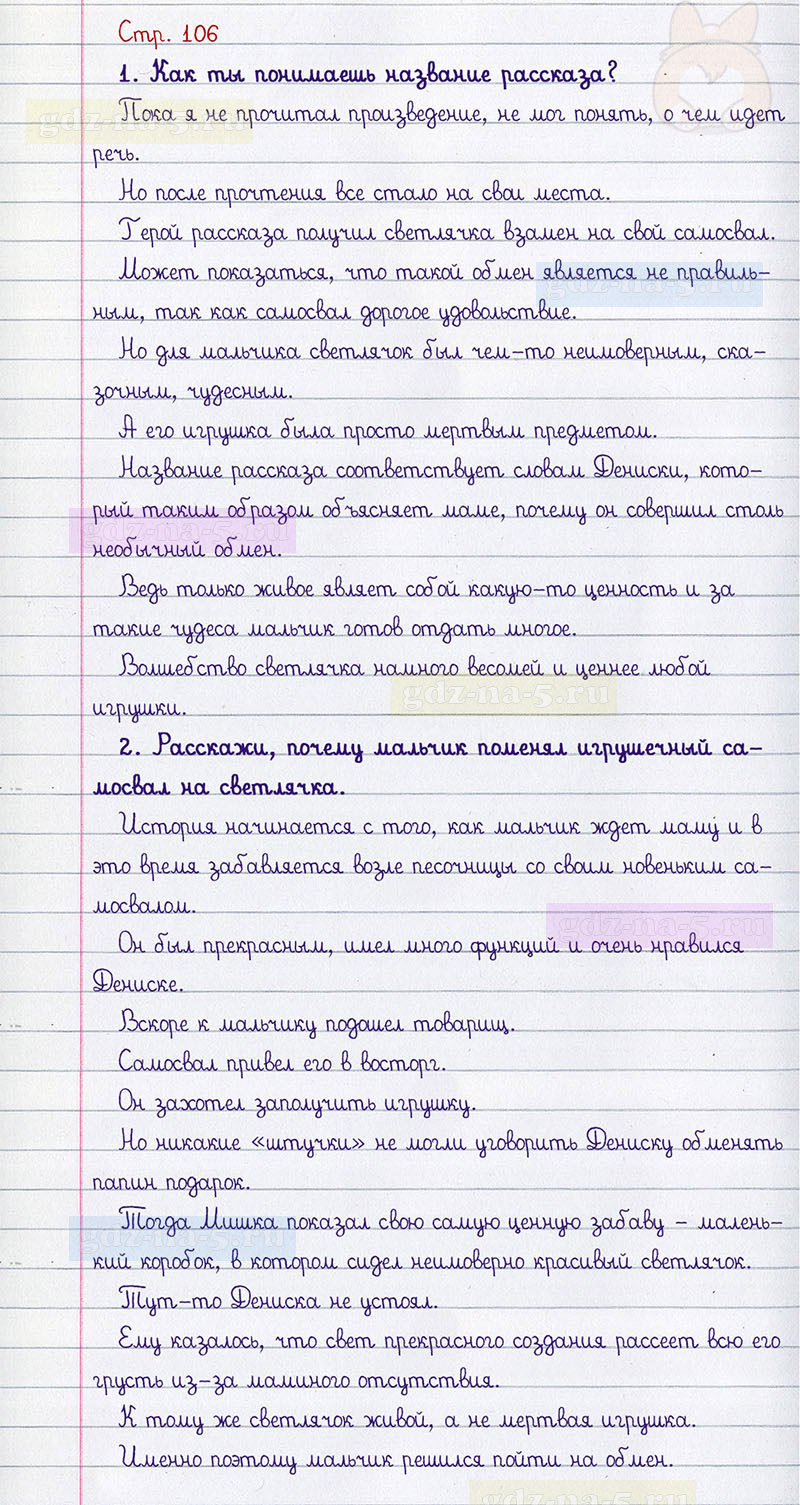 Стр. 106
1. Как ты понимаешь название рассказа?
Пока я не прочитал произведение, не мог понять, о чем идет
речь.
Но после прочтения все стало на свои места.
Герой рассказа получил светлячка взамен на свой самосвал.
Может показаться, что такой обмен является не правиль-
ным, так как самосвал дорогое удовольствие.
Но для мальчика светлячок был чем-то неимоверным, ска-
зочным, чудесным.
А его игрушка была просто мертвым предметом.
Название рассказа соответствует словам Дениски, кото-
рый таким образом объясняет маме, почему он совершил столь
необычный обмен.
Ведь только живое являет собой какую-то ценность и за
такие чудеса мальчик готов отдать многое.
Волшебство светлячка намного весомей и ценнее любой
игрушки.
2. Расскажи, почему мальчик поменял игрушечный са-
мосвал на светлячка.
История начинается с того, как мальчик ждет маму и в
это время забавляется возле песочницы со своим новеньким са-
мосвалом.
Он был прекрасным, имел много функций и очень нравился
Дениске.
Вскоре к мальчику подошел товарищ.
Самосвал привел его в восторг.
Он захотел заполучить игрушку.
Но никакие «штучки» не могли уговорить Дениску обменять
папин подарок.
Тогда Мишка показал свою самую ценную забаву – малень-
кий коробок, в котором сидел неимоверно красивый светлячок.
Тут-то Дениска не устоял.
Ему казалось, что свет прекрасного создания рассеет всю его
грусть из-за маминого отсутствия.
К тому же светлячок живой, а не мертвая игрушка.
Именно поэтому мальчик решился пойти на обмен.
gdz-na-5.ru
gdz-na-5.ru
gdz-na-5.ru
gdz-na-5.ru
gdz-na-5.ru
gdz-na-5.ru
gdz-na-5.ru